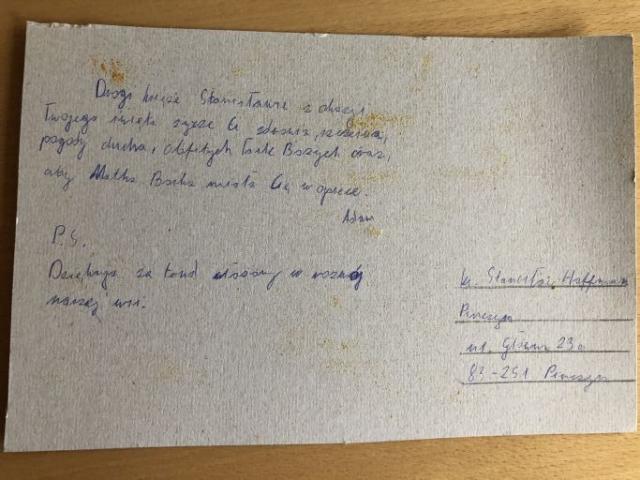 Drogi księże Stanisławie z okazji
Twojego święta życzę Ci zdrowia, szczęścia,
pogody ducha, obfitych Łask Bożych oraz,
aby Matka Boska miała Cię w opiece.
Adam
P.S.
Dziękuję za trud włożony w rozwój
naszej wsi.
ks. Stanisław Hoffmann
Pinczyn
ul. Główna 23a
83-251 Pinczyn